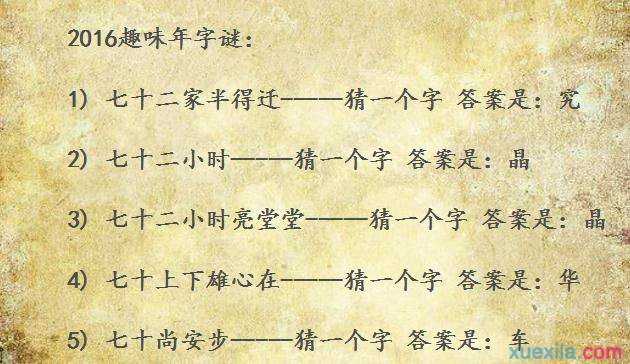 2016趣味年字谜：
1) 七十二家半得迁-———猜一个字 答案是：究
2) 七十二小时—-——猜一个字 答案是：晶
3) 七十二小时亮堂堂-———猜一个字 答案是：晶
4) 七十上下雄心在-———猜一个字 答案是：华
5) 七十尚安步———猜一个字 答案是：车
学习啦
xuexila.com